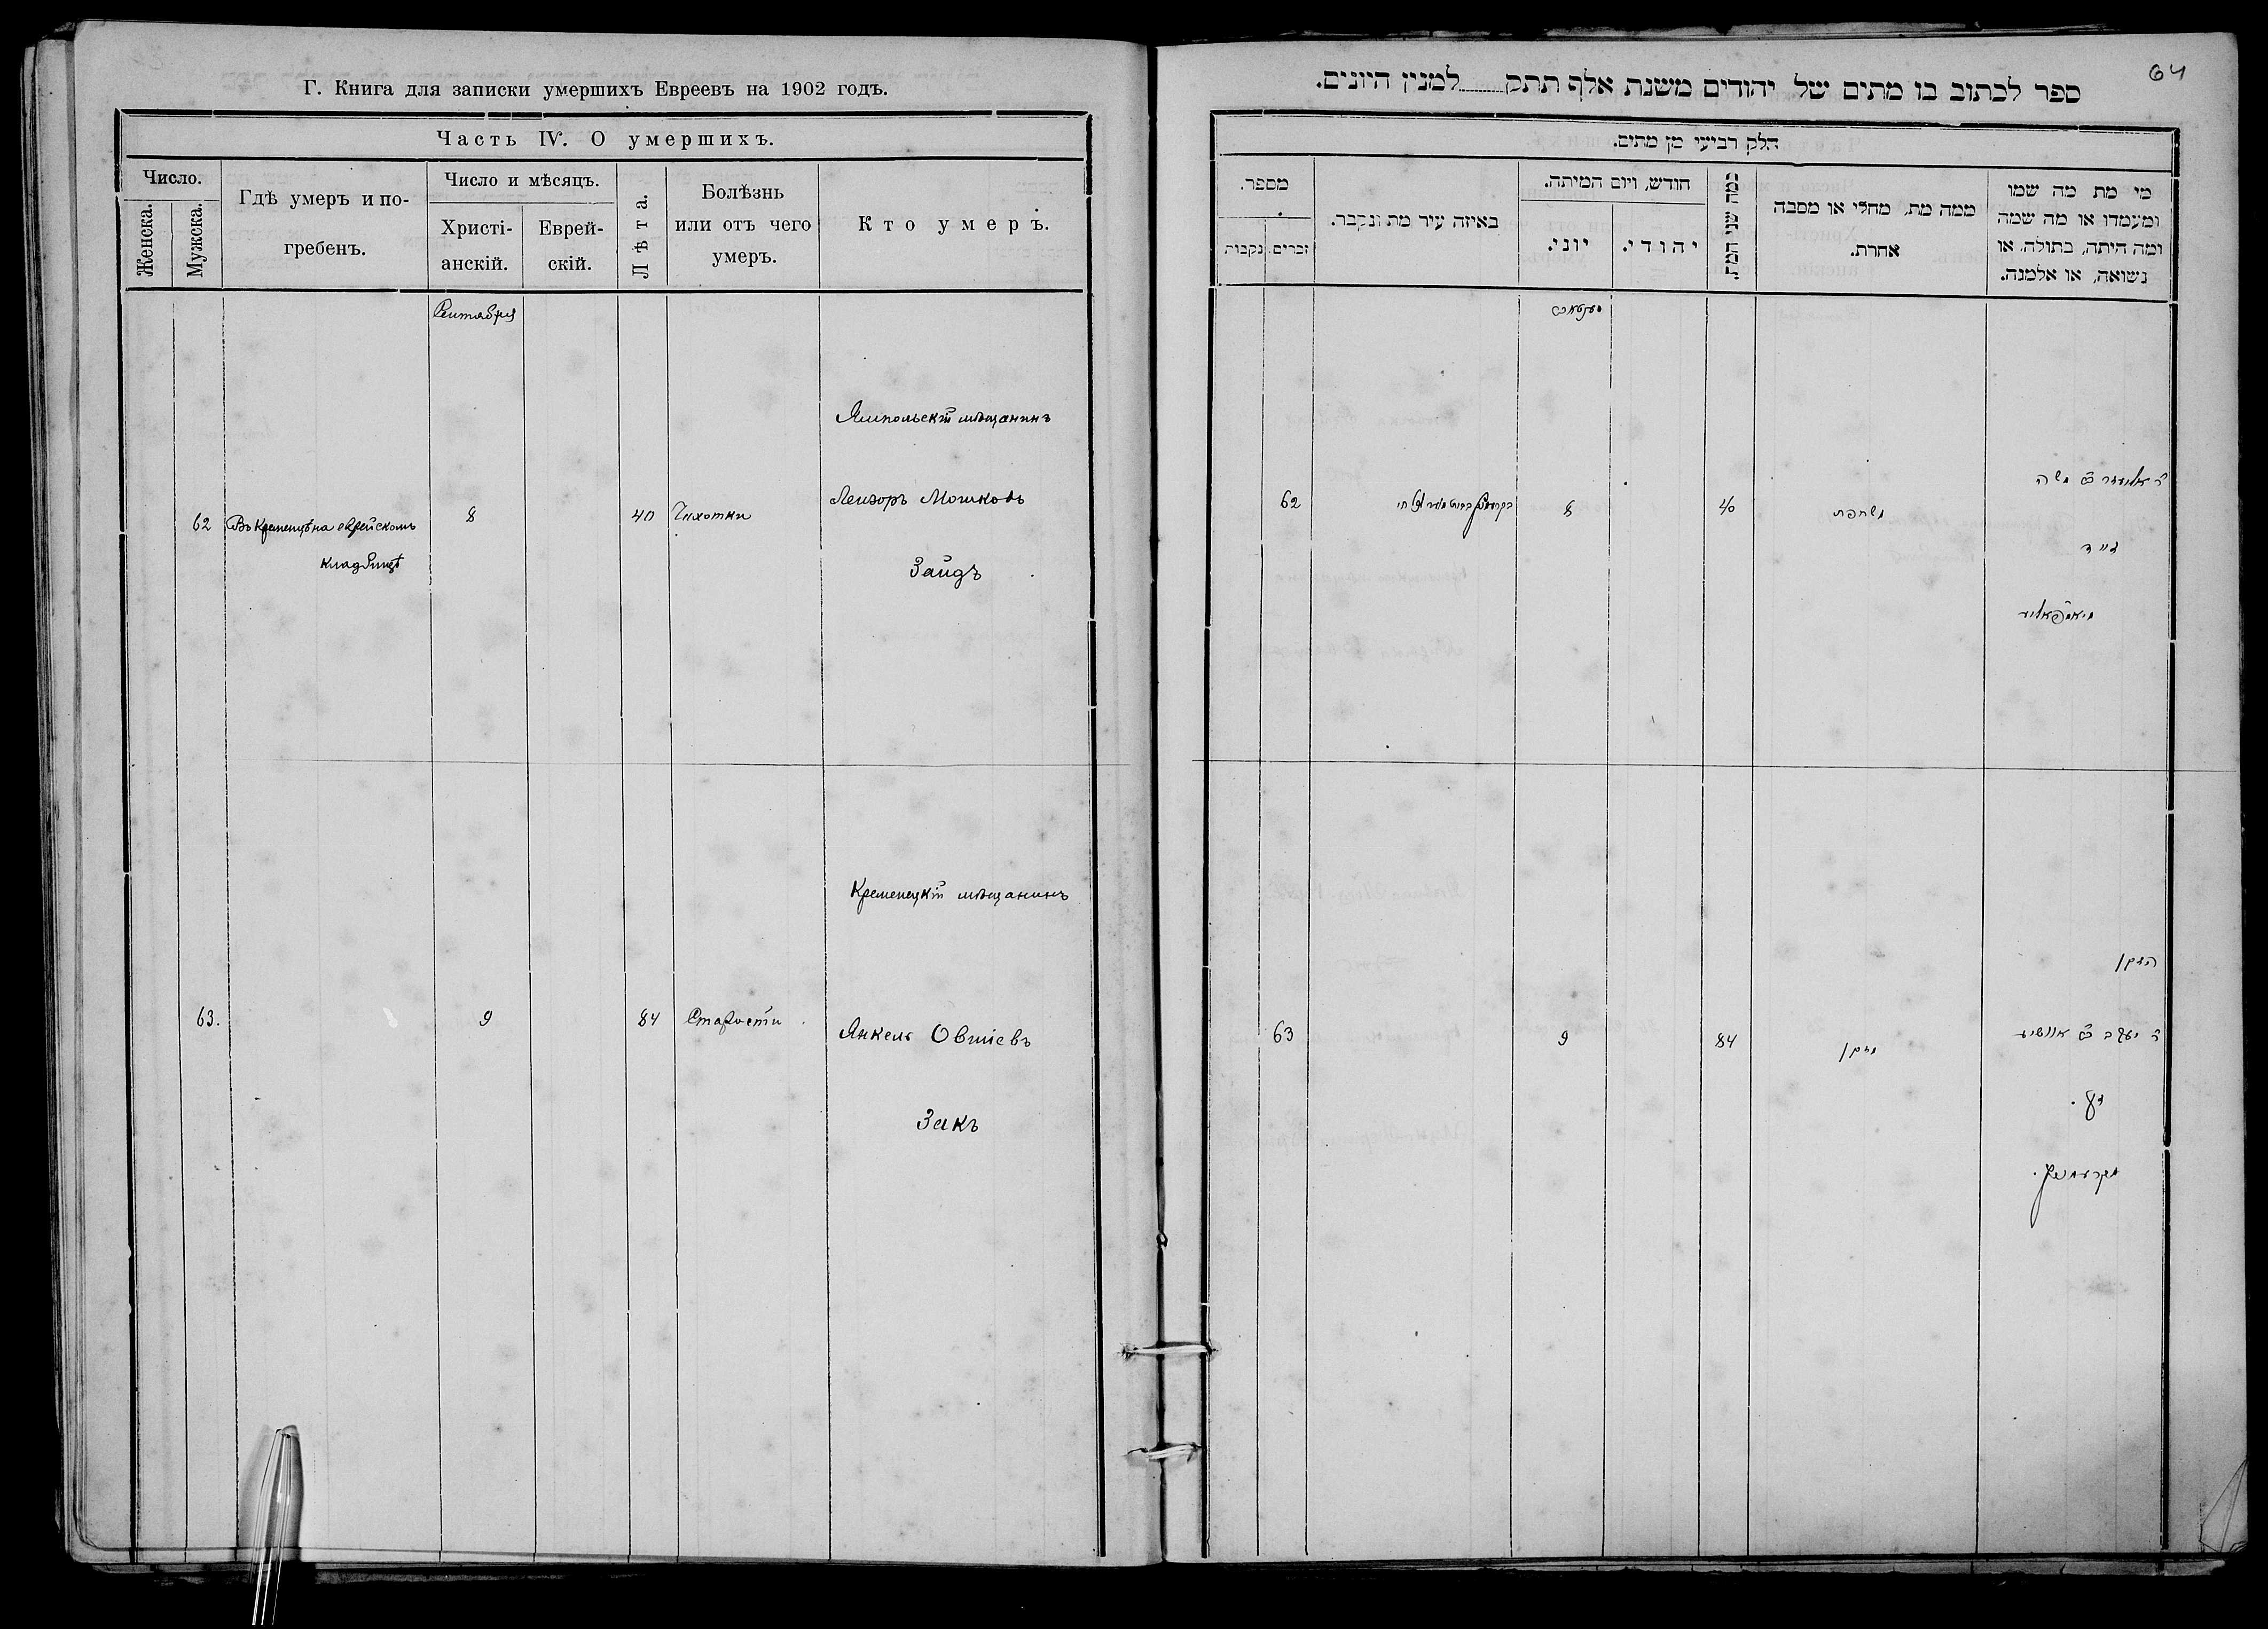 Г. Книга для записки умершихъ Евреевъ на 1902 годъ.
Часть IV. О умершихъ.
Число.
Женска.
Мужска.
Гдѣ умеръ и по-
гребенъ.
Число и мѣсяцъ.
Христі-
анскій.
Еврей-
скій.
Лѣта.
Болѣзнь
или отъ чего
умеръ.
Кто умеръ.
Сентября
Ямпольскій мѣщанинъ
62 Въ Кременцѣ на еврейскомъ 8 40 Чахотки Лейзоръ Мошковъ
кладбищѣ Зайдъ
Кременецкій мѣщанинъ
63. 9 84 Старости Янкель Овшіевъ
Закъ
64
ספר לכתוב בו מתים של יהודים משנת אלף תתק למנין היונים.
חלק רביעי מן מתים.
מספר.
זכרים.
נקבות
באיזה עיר מת ונקבר.
חודש, ויום המיתה.
יוני.
יהודי.
כמה שני המת.
ממה מת, מחלי או מסבה
אחרת.
מי מת מה שמו
ומעמדו או מה שמה
ומה היתה, בתולה, או
נשואה, או אלמנה.
62 8 40 משחפת ר׳ אליעזר ב״ר משה
זייד
מיאמפאליע
הזקן
63 9 84 מזקן ר׳ יעקב ב״ר אוושיע
זק.
מקרעמניץ.